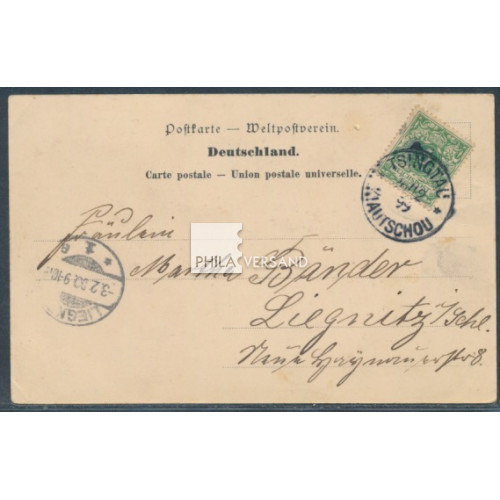 Postkarte — Weltpostverein.
Deutschland.
Carte postale — Union postale universelle.
TSINGTAU
KIAUTSCHOU
99
Fräulein
PHILA VERSAND
Bänder
Liegnitz i/Schl.
Neue Haynauerstr. 8.
LIEGN
-3.2.00.9-10V.